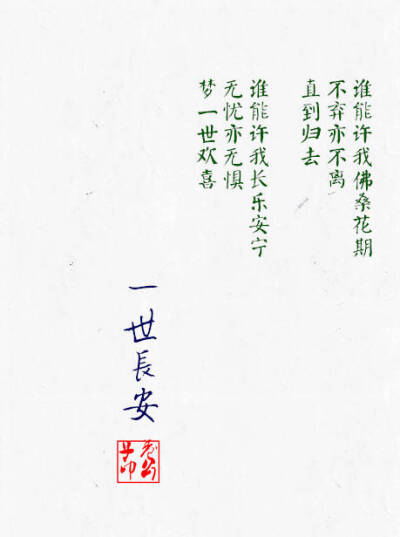 谁能许我佛桑花期
不弃亦不离
直到归去
谁能许我长乐安宁
无忧亦无惧
梦一世欢喜
一世長安